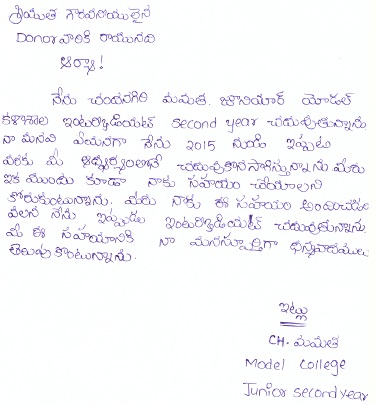 శ్రీయుత గౌరవనీయులైన
Donor వారికి రాయునది
ఆర్యా!
నేను చందనగిరి మమత. జూనియర్ మోడల్
కళాశాల ఇంటర్మీడియట్ second year చదువుతున్నాను
నా మనవి ఏమనగా నేను 2015 నుండి ఇప్పటి
వరకు మీ ఆధ్వర్యంలోనే చదువుకొనసాగిస్తున్నాను. మీరు
ఇక ముందు కూడా నాకు సహాయం చేయాలని
కోరుకుంటున్నాను. మీరు నాకు ఈ సహాయం అందించడం
వలన నేను ఇప్పుడు ఇంటర్మీడియట్ చదువుతున్నాను.
మీ ఈ సహాయానికి నా మనస్ఫూర్తిగా ధన్యవాదములు
తెలుపుకొంటున్నాను.
ఇట్లు
CH. మమత
Model College
Junior second year